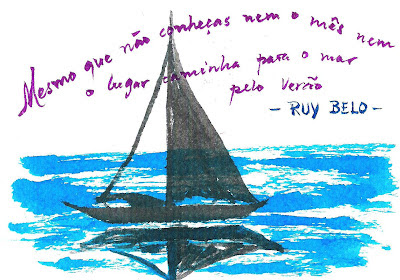 Mesmo que não conheças nem o mês nem
o lugar caminha para o mar
pelo verão
- RUY BELO -